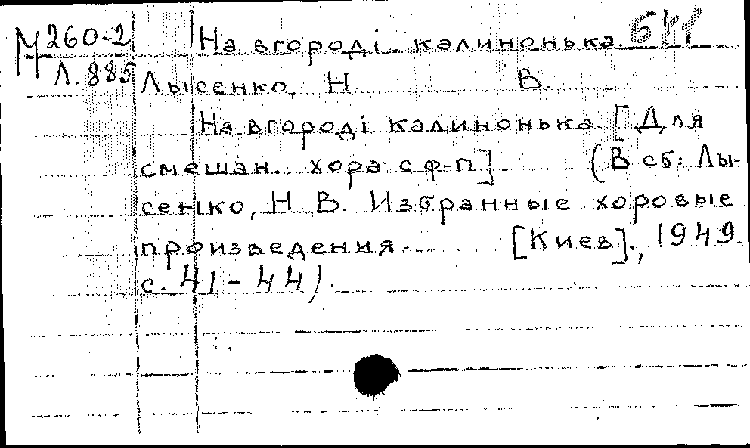 М 260-2 На вгороді калинонька
Л.885 Лысенко, Н В.
На вгороді калинонька [Для
смешан. хора с ф-п]. (В сб: Лы-
сенко, Н В. Избранные хоровые
произведения. [Киев]., 1949
с. 41-44).